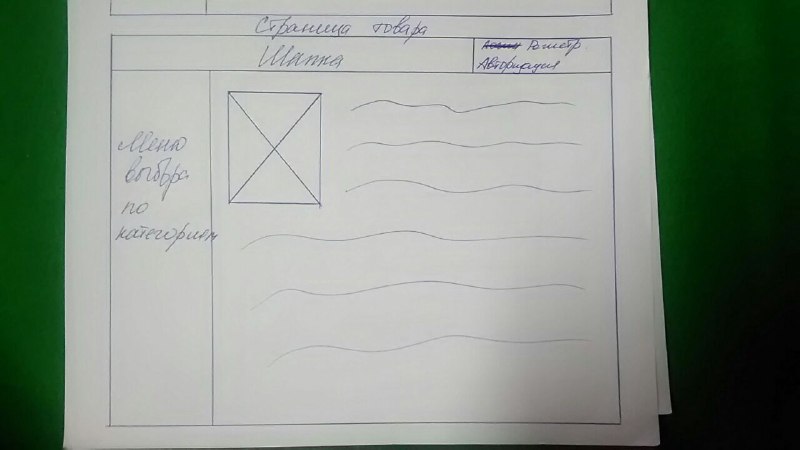 Страница товара
Шапка
Регистр.
Авторизация
Меню
выбора
по
категориям